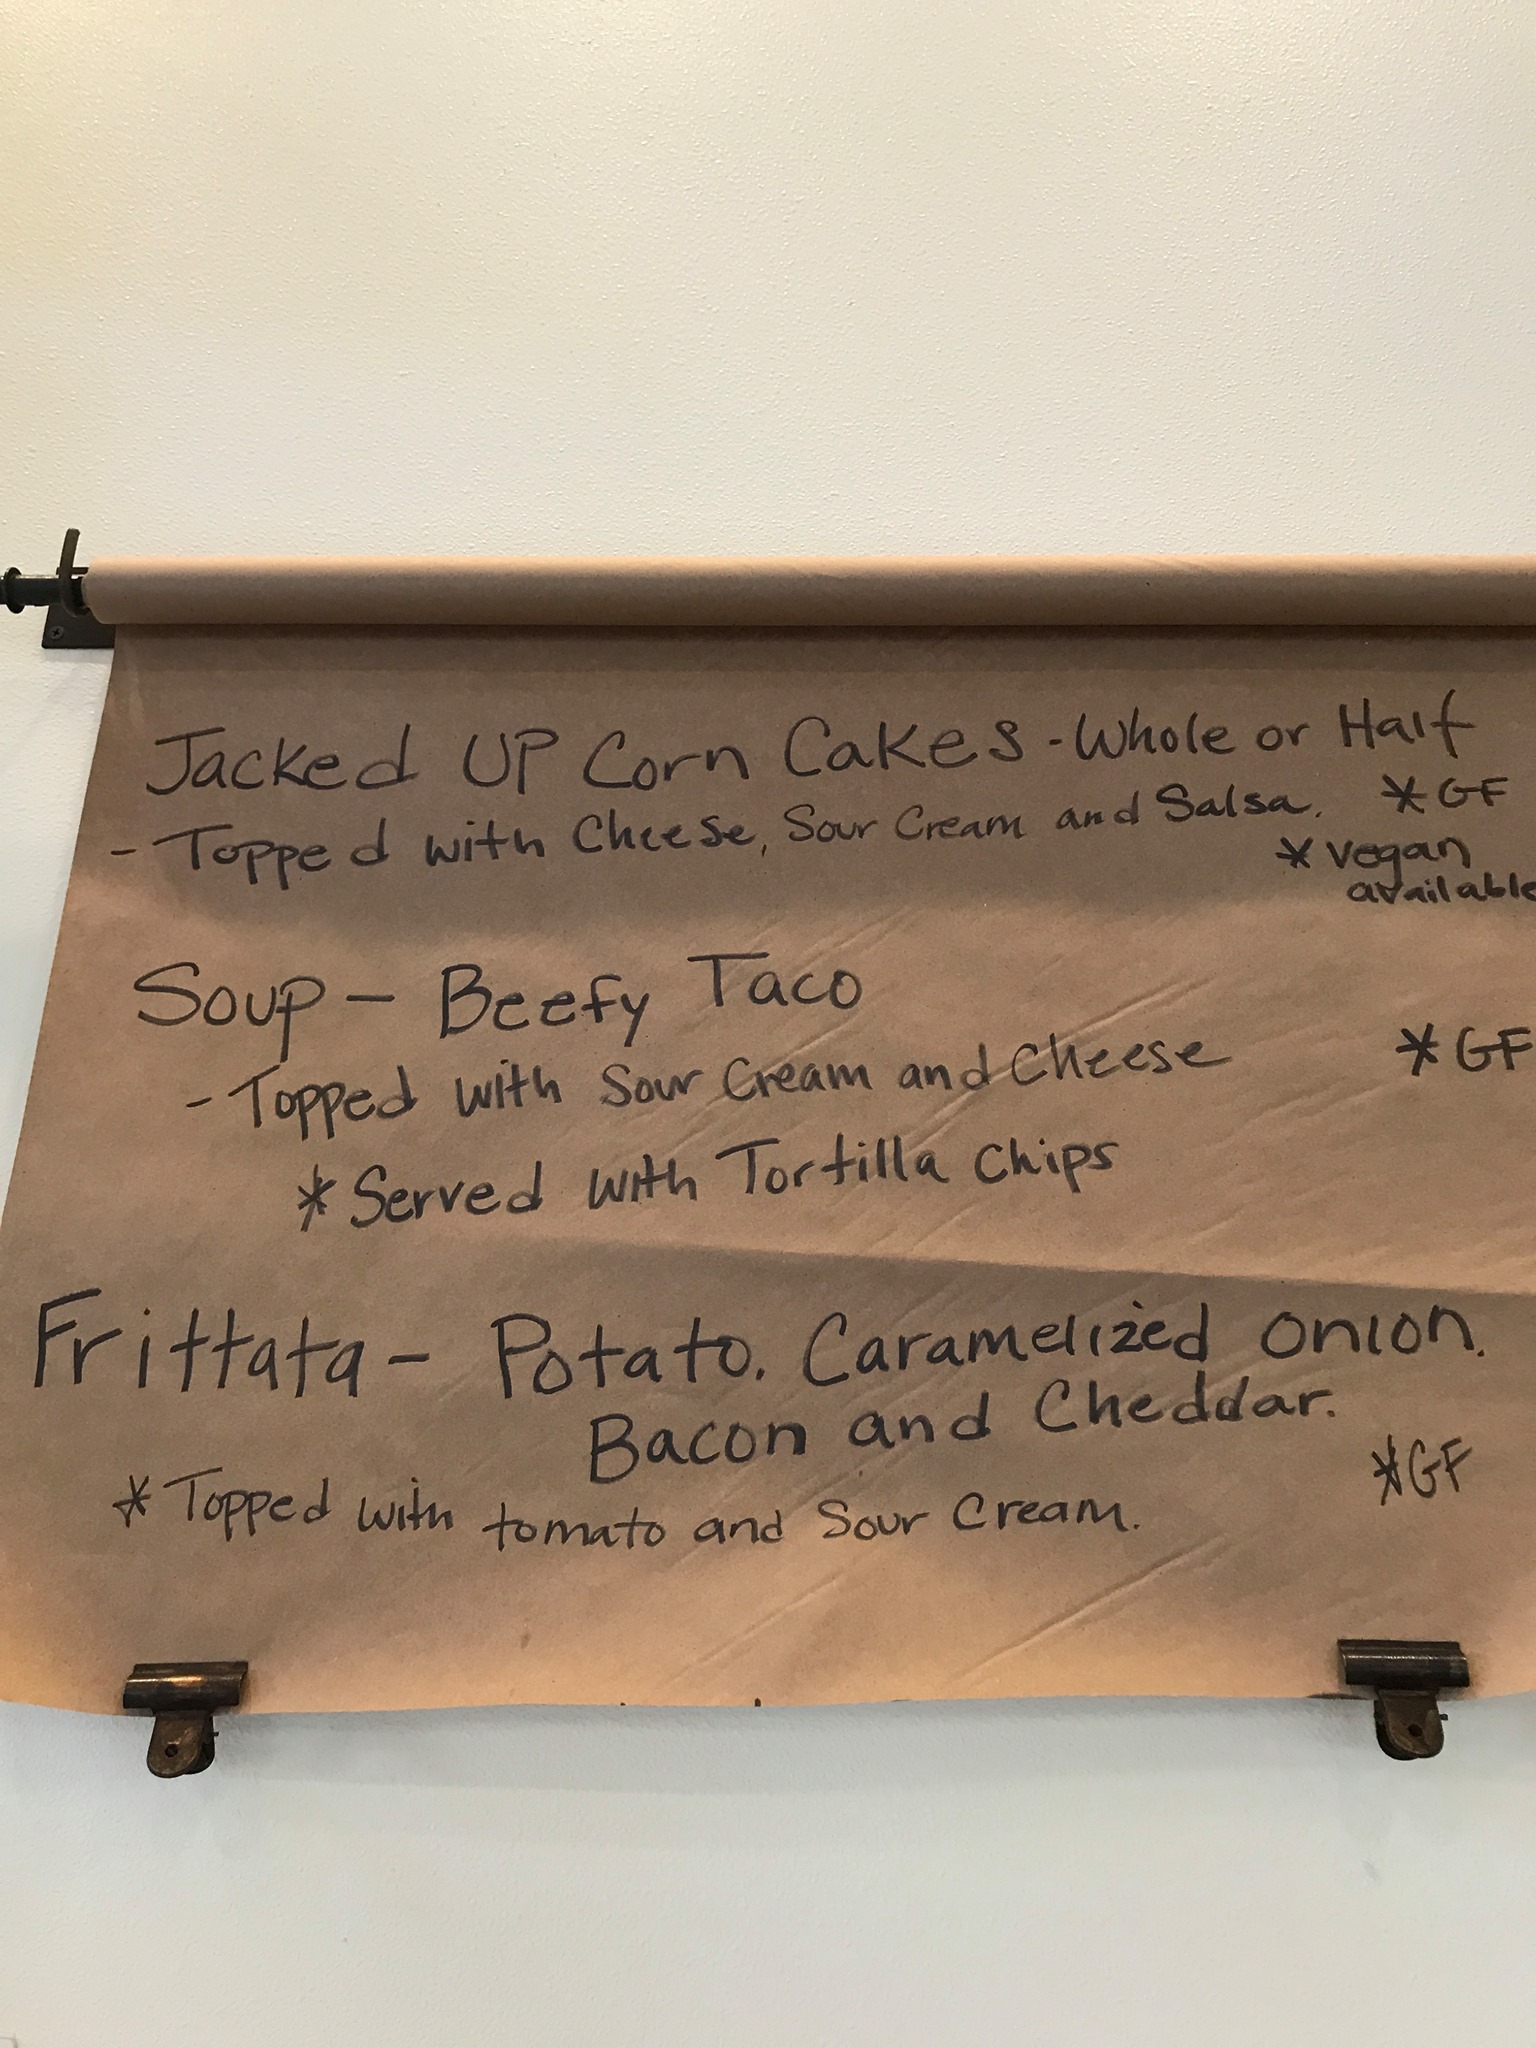 Jacked UP Corn Cakes - Whole or Half
- Topped with Cheese, Sour Cream and Salsa. * GF
* vegan
available
Soup - Beefy Taco
- Topped with Sour Cream and Cheese * GF
* Served with Tortilla Chips
Frittata - Potato. Caramelized onion.
Bacon and Cheddar.
* Topped with tomato and Sour Cream. * GF